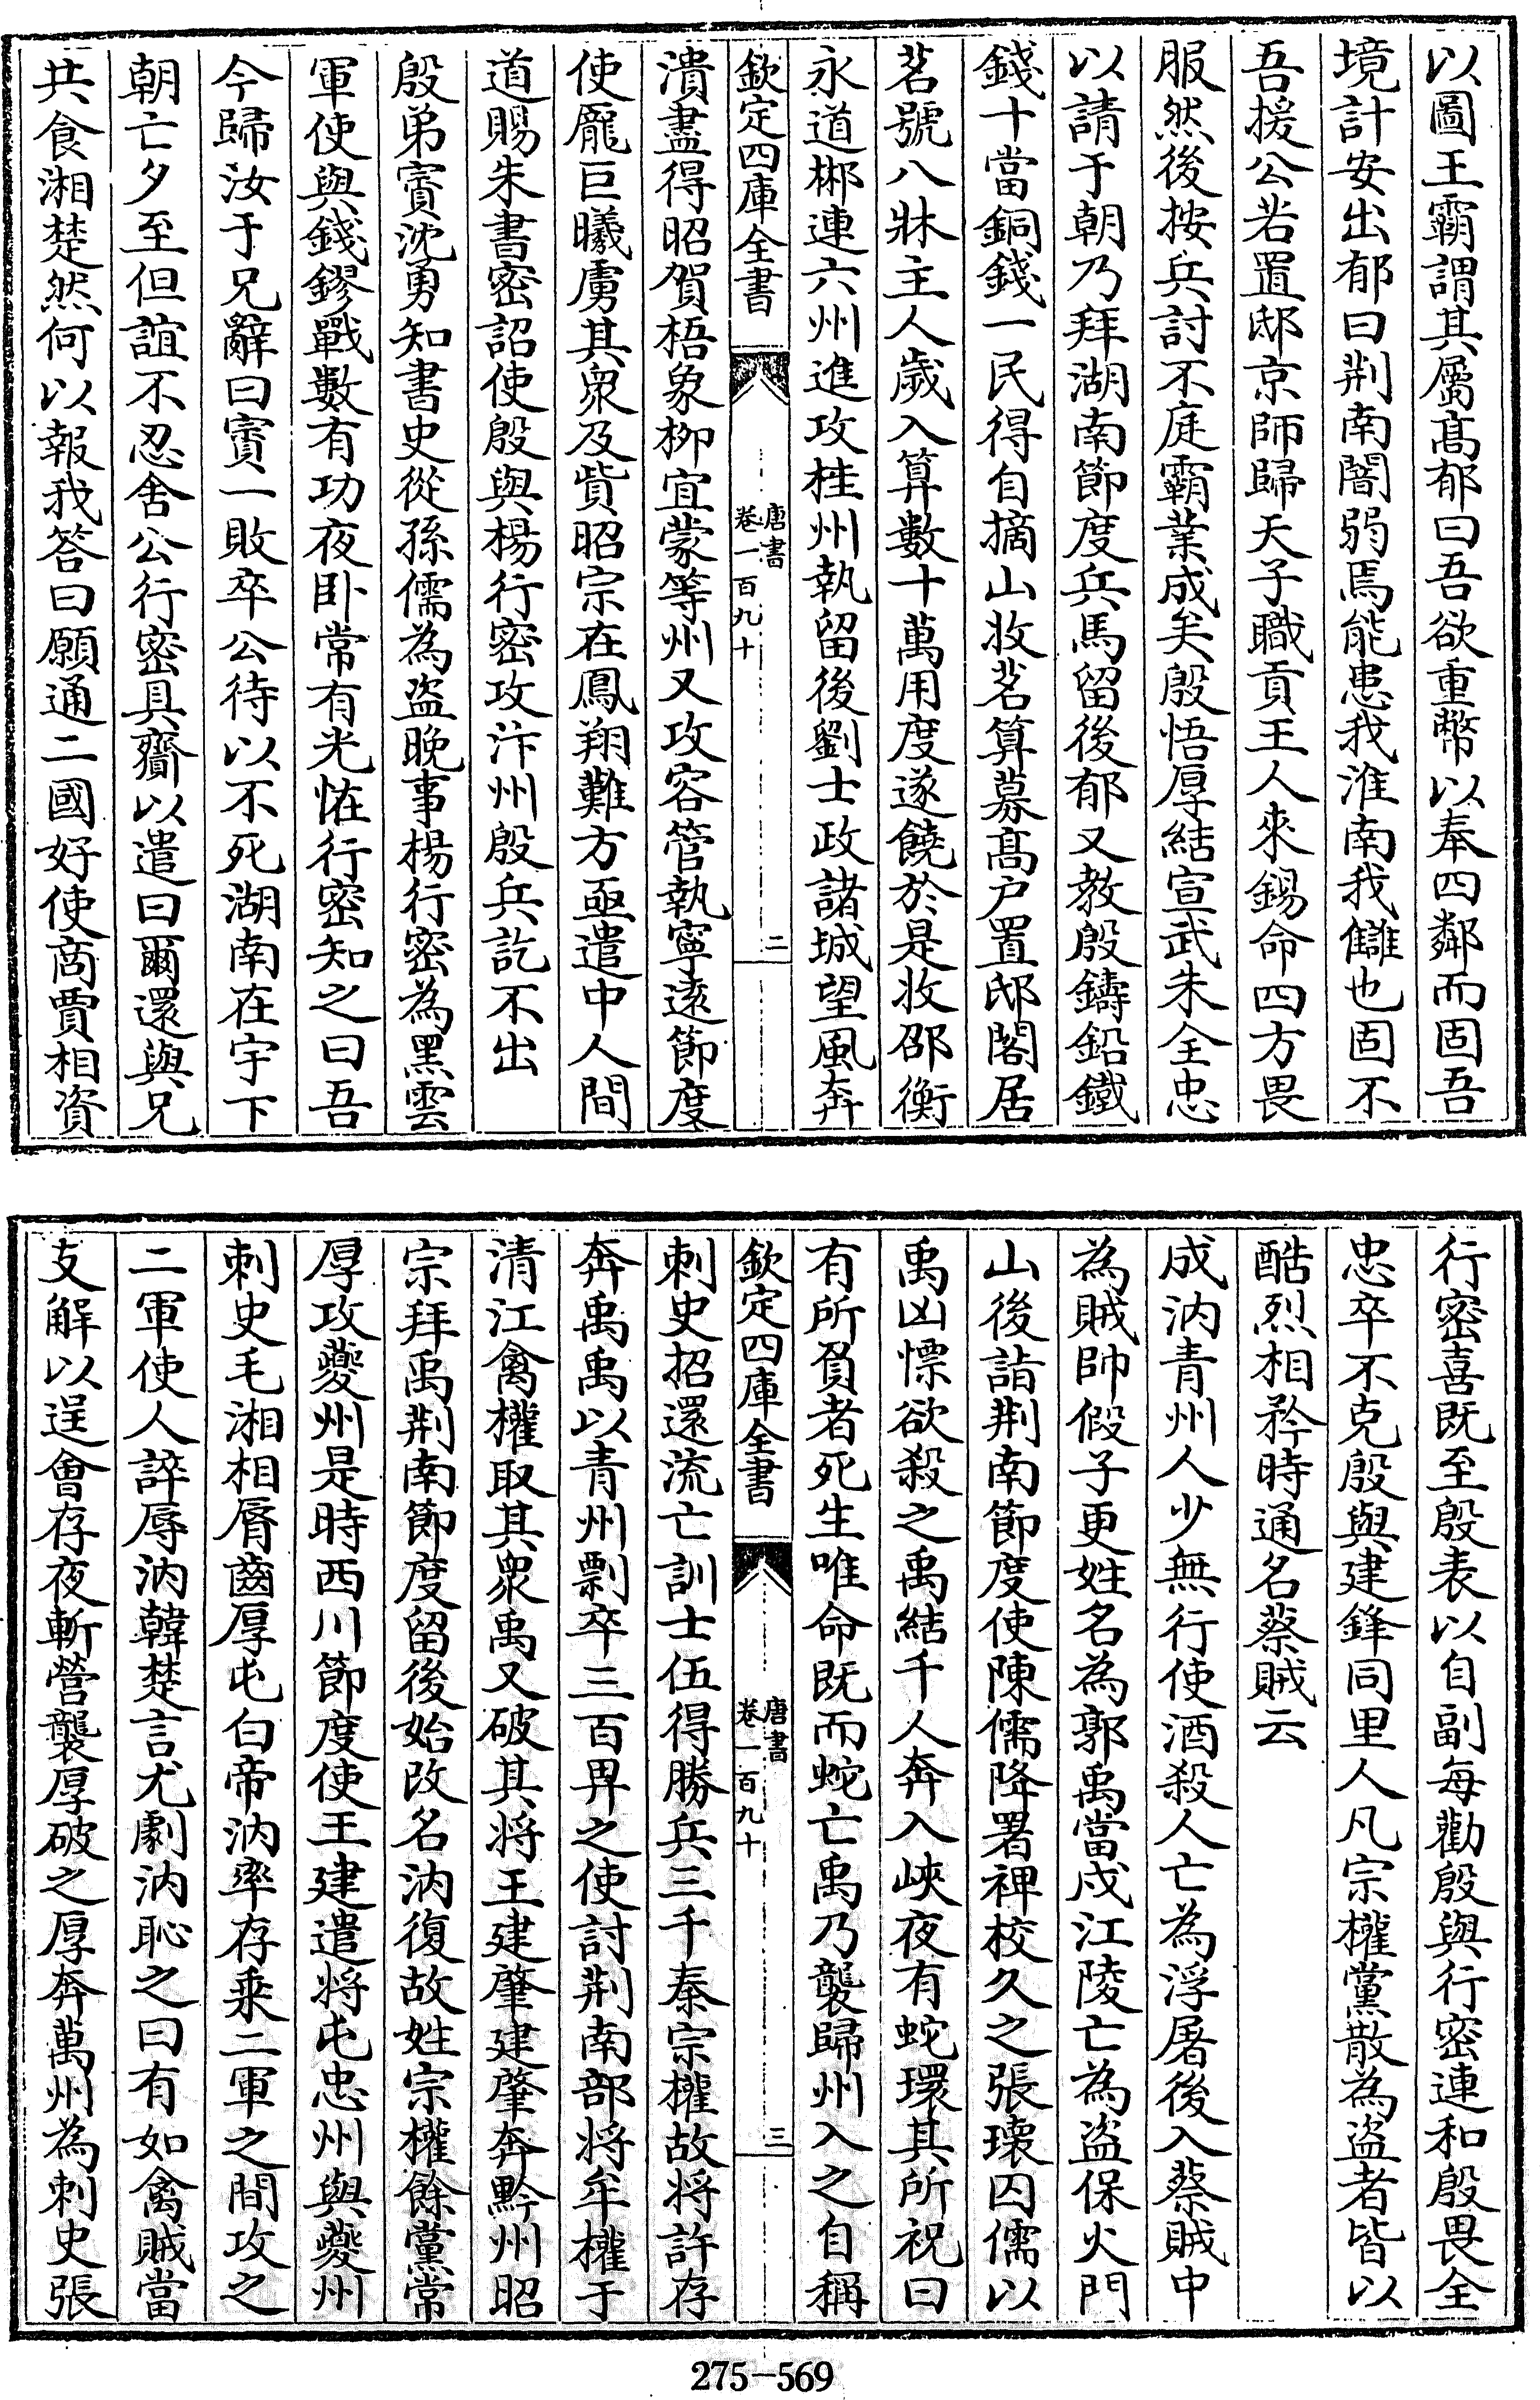 以圖王霸謂其屬髙郁曰吾欲重幣以奉四鄰而固吾
境計安出郁曰荆南闇弱焉能患我淮南我讎也固不
吾援公若置邸京師歸天子職貢王人來錫命四方畏
服然後按兵討不庭霸業成矣殷悟厚結宣武朱全忠
以請于朝乃拜湖南節度兵馬留後郁又教殷鑄鉛鐵
錢十當銅錢一民得自摘山收茗算募髙户置邸閣居
茗號八牀主人歲入算數十萬用度遂饒於是收邵衡
永道郴連六州進攻桂州執留後劉士政諸城望風奔
欽定四庫全書
唐書
卷一百九十
二
潰盡得昭賀梧象柳宜蒙等州又攻容管執寧逺節度
使龎巨曦虜其衆及貲昭宗在鳳翔難方亟遣中人間
道賜朱書密詔使殷與楊行密攻汴州殷兵訖不出
殷弟賨沈勇知書史從孫儒為盗晚事楊行密為黑雲
軍使與錢鏐戰數有功夜卧常有光恠行密知之曰吾
今歸汝于兄辭曰賨一敗卒公待以不死湖南在宇下
朝亡夕至但誼不忍舍公行密具齎以遣曰爾還與兄
共食湘楚然何以報我答曰願通二國好使商賈相資
行密喜既至殷表以自副每勸殷與行密連和殷畏全
忠卒不克殷與建鋒同里人凡宗權黨散為盗者皆以
酷烈相矜時通名蔡賊云
成汭青州人少無行使酒殺人亡為浮屠後入蔡賊中
為賊帥假子更姓名為郭禹當戍江陵亡為盗保火門
山後詣荆南節度使陳儒降署裨校久之張瓌囚儒以
禹凶慓欲殺之禹結千人奔入峽夜有蛇環其所祝曰
有所負者死生唯命既而蛇亡禹乃襲歸州入之自稱
欽定四庫全書
唐書
卷一百九十
三
刺史招還流亡訓士伍得勝兵三千秦宗權故将許存
奔禹禹以青州剽卒三百畀之使討荆南部将牟權于
清江禽權取其衆禹又破其将王建肇建肇奔黔州昭
宗拜禹荆南節度留後始改名汭復故姓宗權餘黨常
厚攻夔州是時西川節度使王建遣将屯忠州與夔州
刺史毛湘相脣齒厚屯白帝汭率存乗二軍之間攻之
二軍使人誶辱汭韓楚言尤劇汭恥之曰有如禽賊當
支解以逞會存夜斬營襲厚破之厚奔萬州為刺史張
275-569